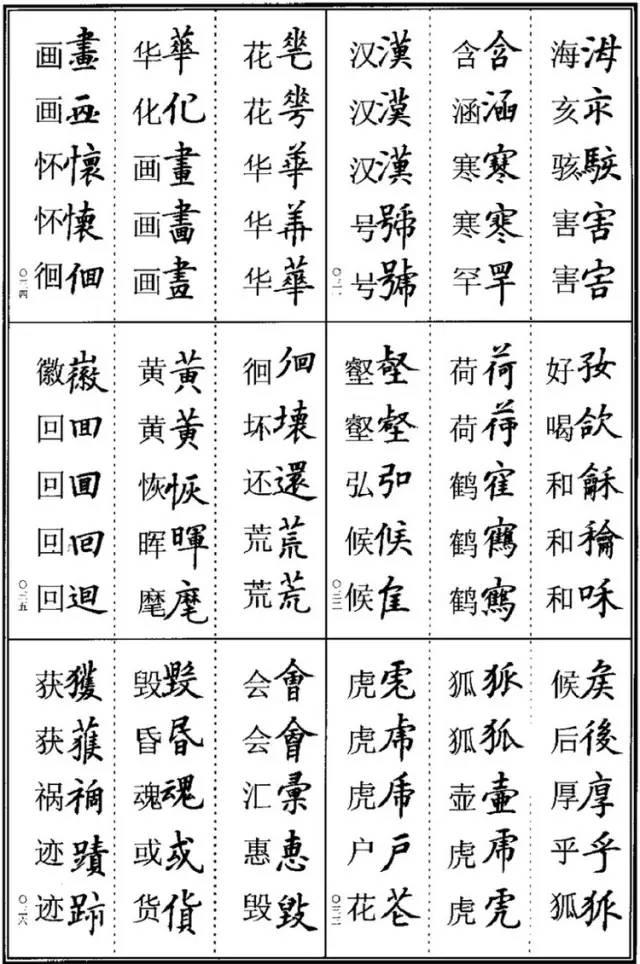 海海
亥亥
骇駭
害害
害害
含含
涵涵
寒寒
寒寒
罕罕
汉漢
汉漢
汉漢
号號
号號
〇三一
好好
喝欱
和龢
和龢
和咊
荷荷
荷荷
鹤隺
鹤鶴
鹤鶴
壑壑
壑壑
弘弘
候候
候隹
〇三二
候矦
后後
厚厚
乎乎
狐狐
狐狐
狐狐
壶壷
虎虎
虎虎
虎虎
虎虎
虎虎
户戸
花苍
〇三三
花芲
花蕚
华華
华華
华華
华華
化化
画畫
画畵
画畫
画畫
画画
怀懷
怀懐
徊佪
〇三四
徊徊
坏壞
还還
荒荒
荒荒
黄黃
黄黄
恢恢
晖暉
麾麾
徽徽
回囬
回囬
回囘
回迴
〇三五
会會
会會
汇彙
惠恵
毁毀
毁毀
昏昬
魂魂
或或
货貨
获獲
获蒦
祸禍
迹蹟
迹跡
〇三六